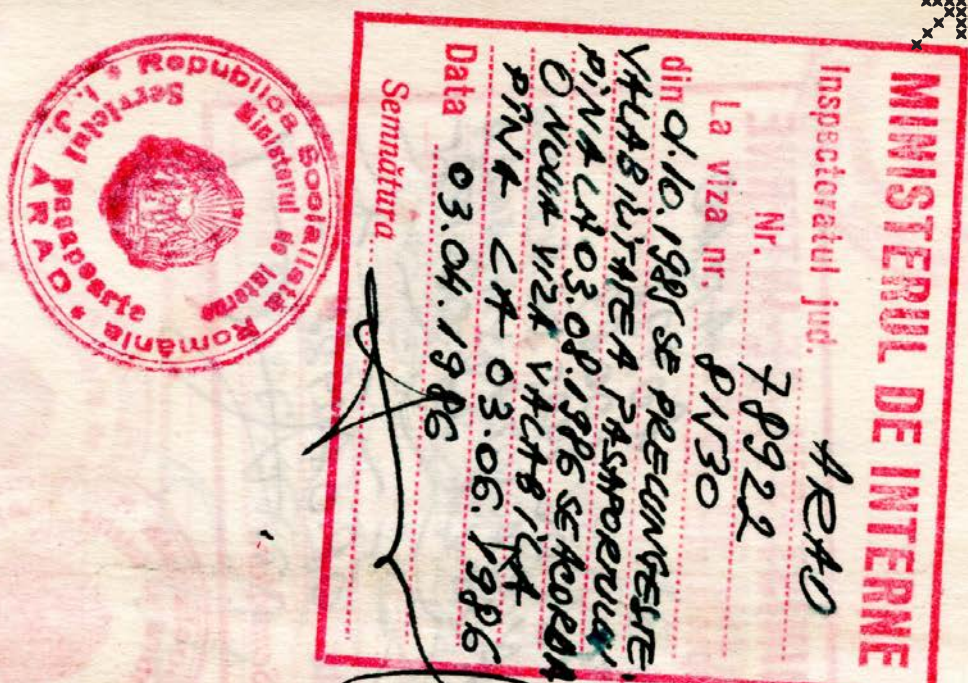 MINISTERUL DE INTERNE
Inspectoratul jud. ARAD
Nr. 78922
La viza nr. 81530
din d.10.1985 SE PRELUNGESTE
VALABILITATEA PASAPORTULUI
PÎNA LA 03.08.1986 SE ACORDA
O NOUA VIZA VALABILA
PÎNA LA 03.06.1986
Data 03.04.1986
Semnătura
Republica Socialistă România
Ministerul de Interne
Serviciul Pașapoarte
I.J.
ARAD